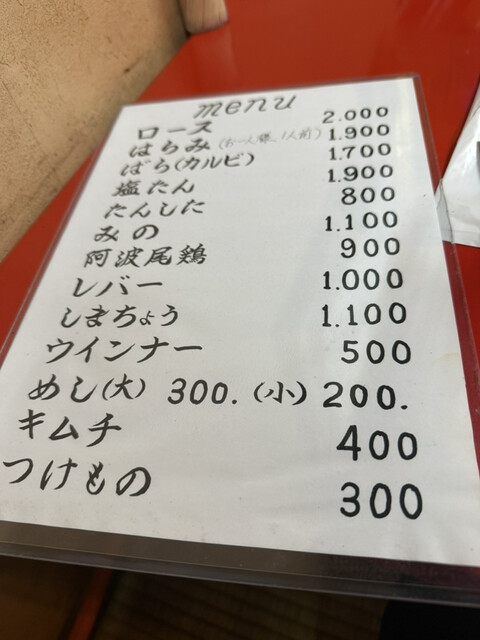 menu
ロース 2.000
はらみ(お一人様、1人前) 1.900
ばら(カルビ) 1.700
塩たん 1.900
たんした 800
みの 1.100
阿波尾鶏 900
レバー 1.000
しまちょう 1.100
ウインナー 500
めし(大) 300. (小) 200.
キムチ 400
つけもの 300